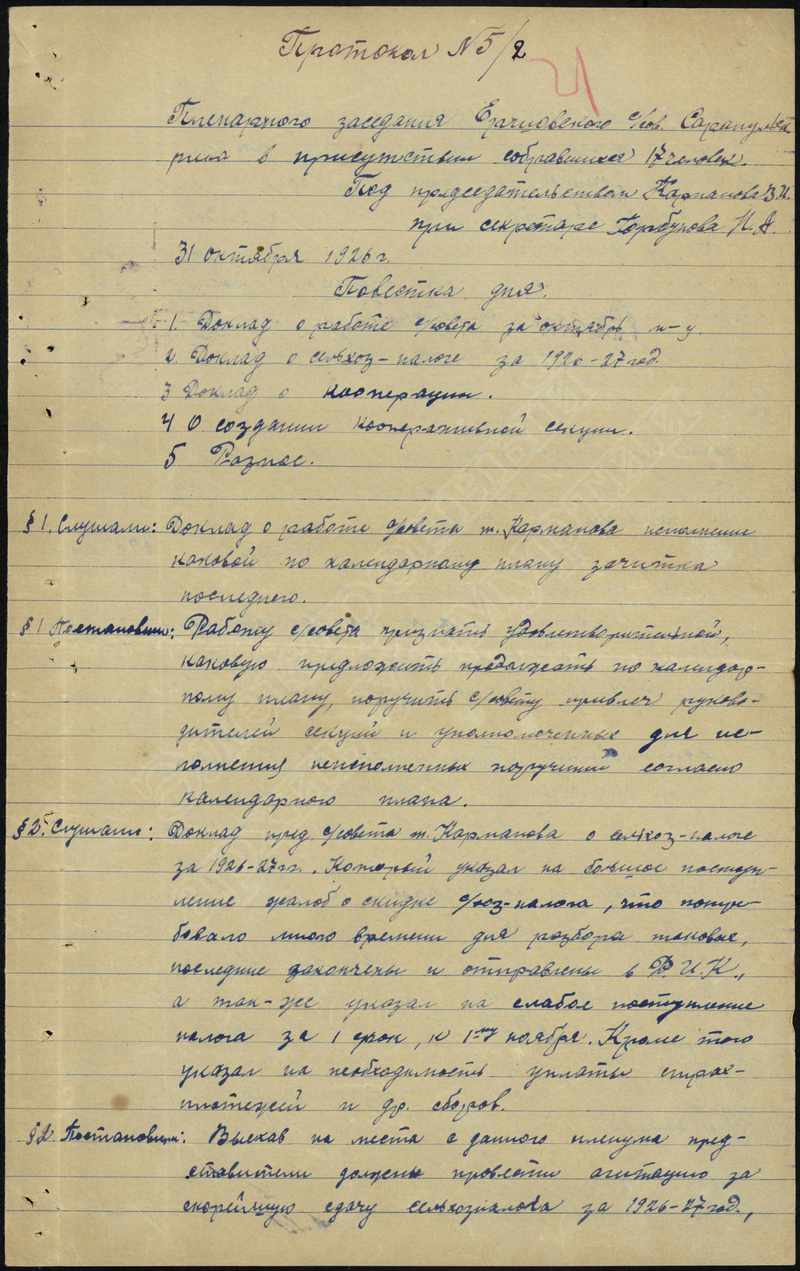 Протокол № 5/2
21
Пленарного заседания Ершовского с/сов. Сарапульск
рика в присутствии собравшихся 17 человек.
Под председательством Карманова З.И.
при секретаре Горбунова И. А.
31 октября 1926 г.
Повестка дня.
1. Доклад о работе с/совета за октябрь м-ц.
2 Доклад о сельхоз-налоге за 1926-27 год.
3 Доклад о кооперации.
4 О создании кооперативной секции.
5 Разное.
§ 1. Слушали: Доклад о работе с/совета т. Карманова исполнение
каковой по календарному плану зачитка
последнего.
§ 1 Постановили: Работу с/совета признать удовлетворительной,
каковую предложить продолжать по календар-
ному плану, поручить с/совету привлеч руково-
дителей секций и уполномоченных для ис-
полнения неисполненных поручений согласно
календарного плана.
§ 2. Слушали: Доклад пред с/совета т. Карманова о сельхоз-налоге
за 1926-27 гг. Который указал на большое поступ-
ление жалоб о скидке с/хоз-налога, что потре-
бовало много времени для разбора таковых,
последние закончены и отправлены в Р.И.К.,
а так-же указал на слабое поступление
налога за 1 срок, к 1му ноября. Кроме того
указал на необходимость уплаты страх-
платежей и др. сборов.
§ 2 Постановили: Выехав на места с данного пленума пред-
ставители должны провести агитацию за
скорейшую сдачу сельхозналога за 1926-27 год.,